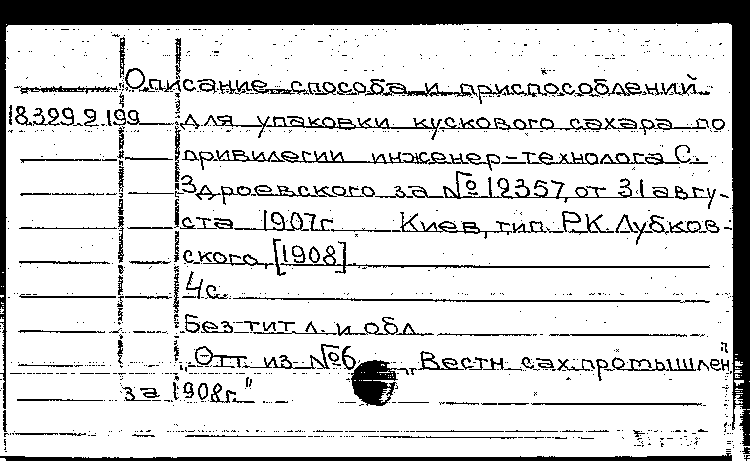 Описание способа и приспособлений
18.399.9.199 для упаковки кускового сахара по
привилегии инженер-технолога С.
Здроевского за №12357, от 31 авгу-
ста 1907г. Киев, тип. Р.К. Лубков-
ского, [1908].
4с.
Без тит. л. и обл.
„Отт. из №6 „Вестн. сах. промышлен."
за 1908г."